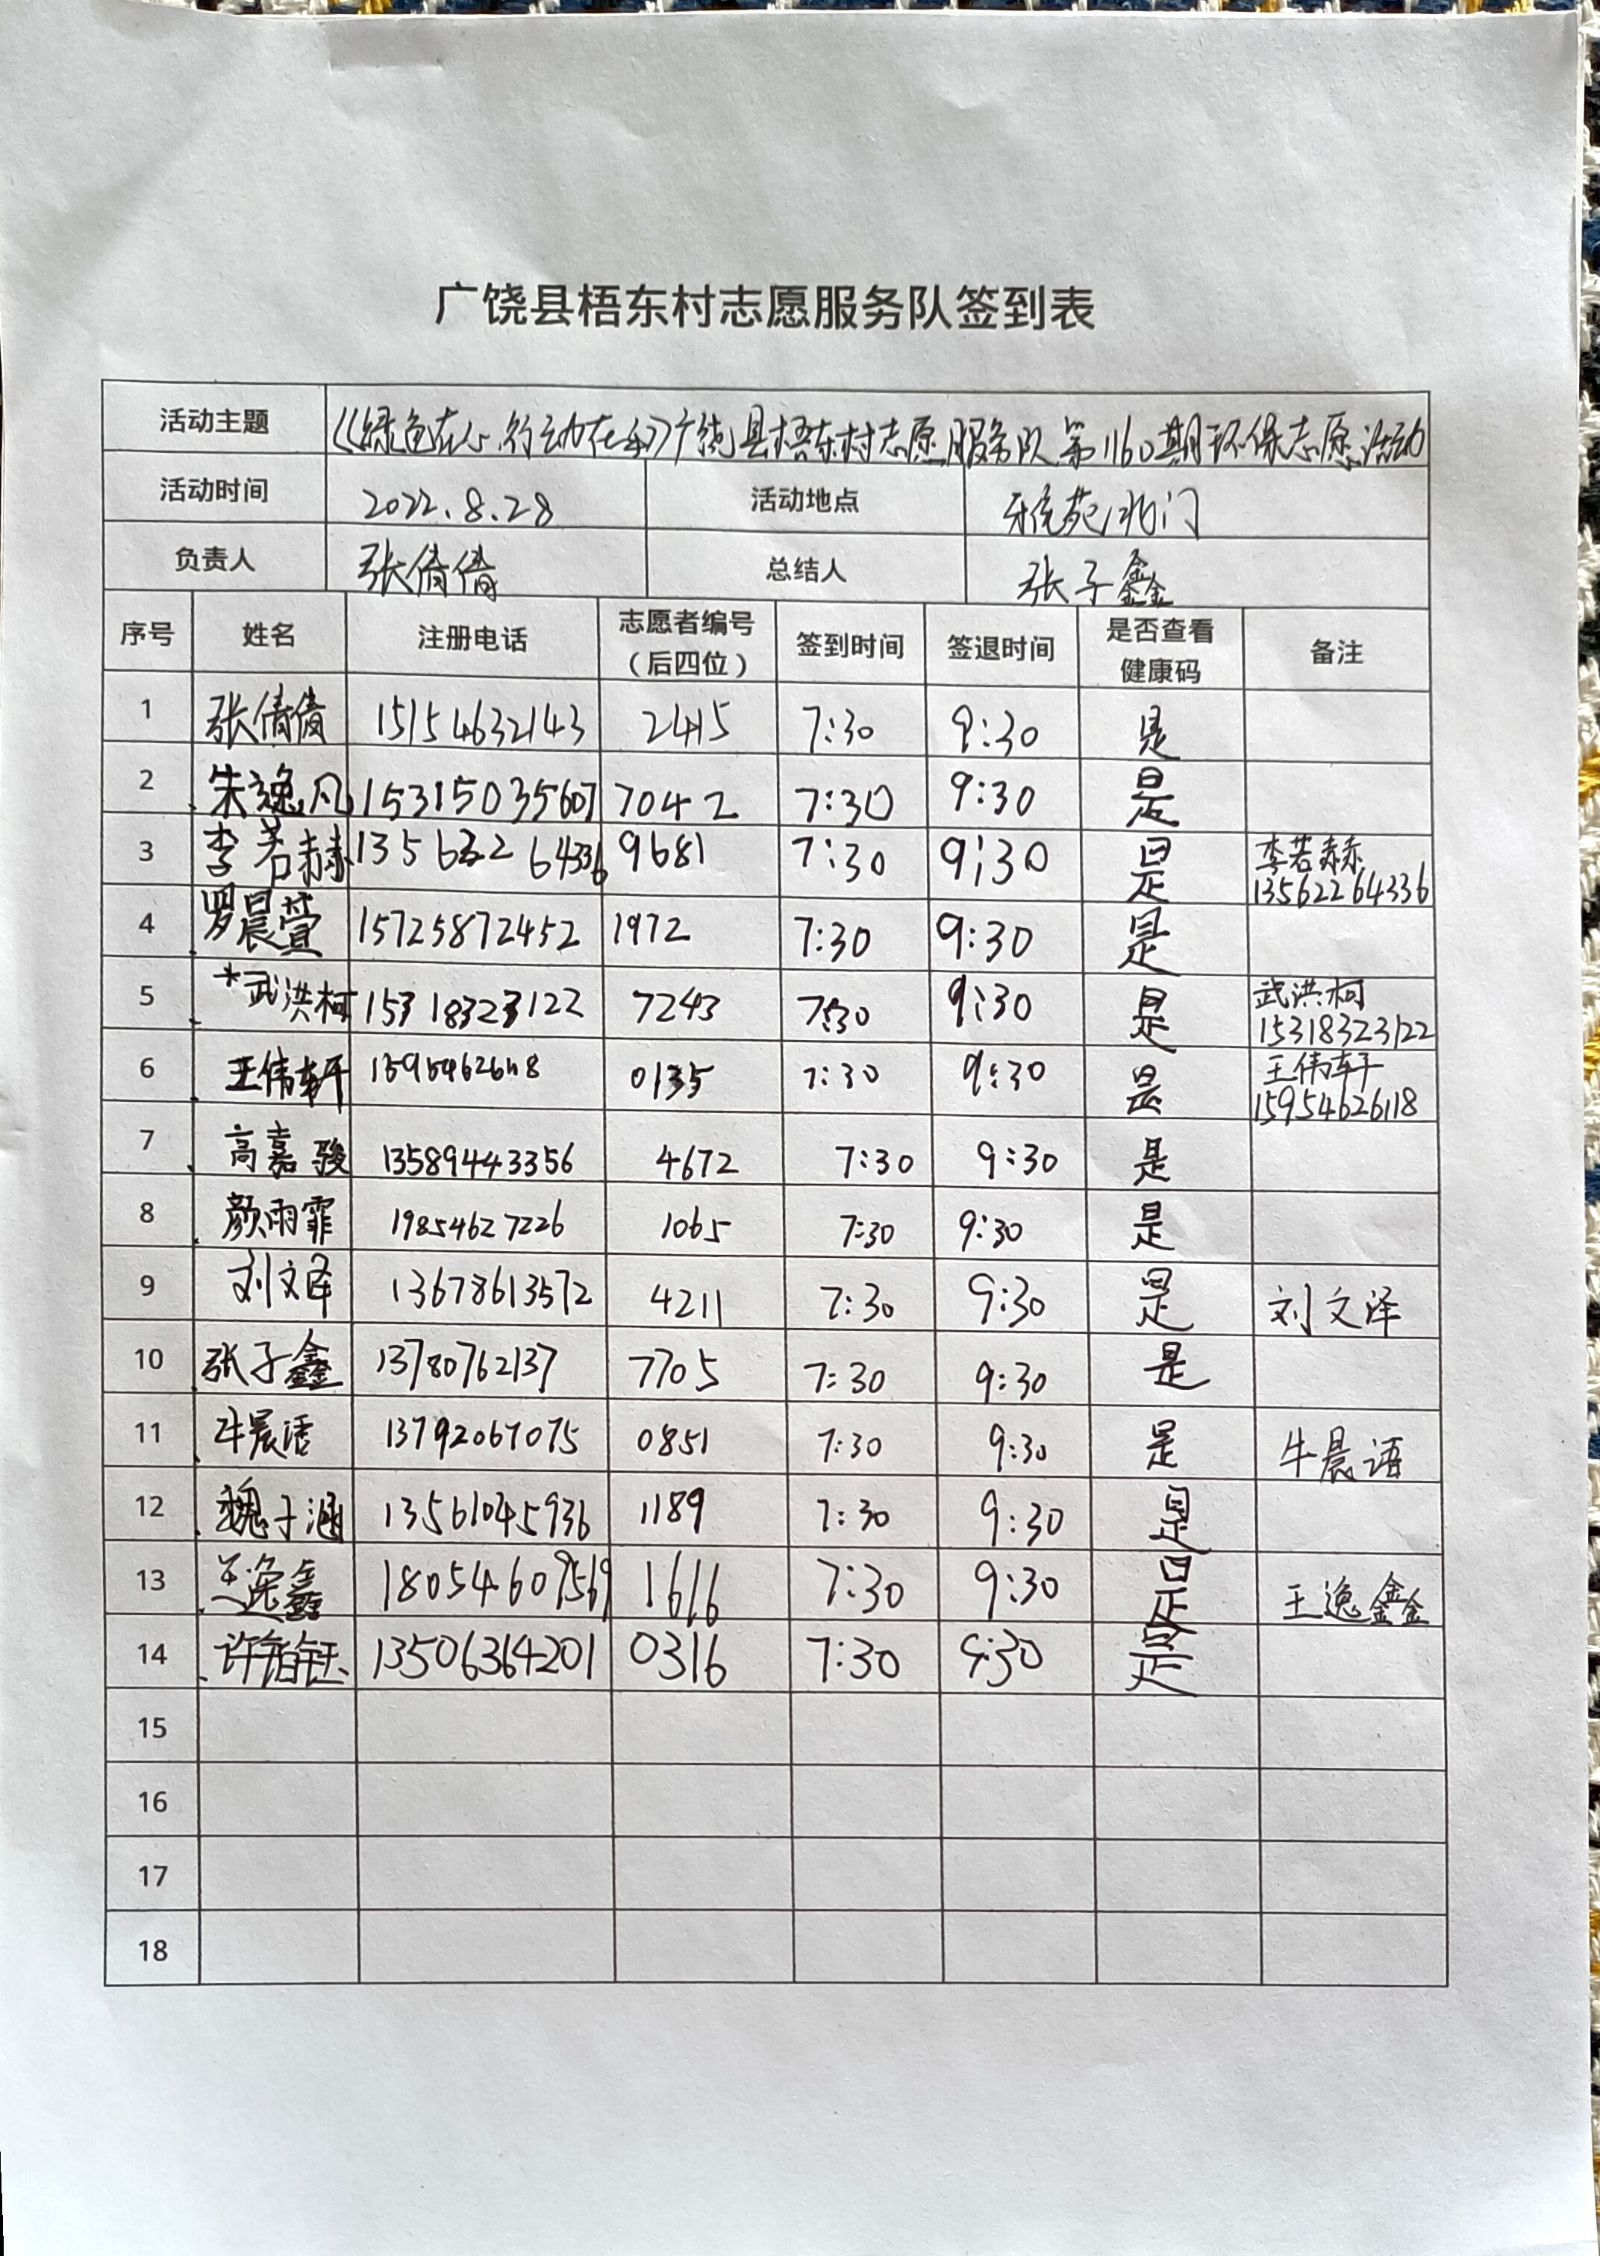 广饶县梧东村志愿服务队签到表
活动主题 《绿色在心.行动在手》广饶县梧东村志愿服务队第1160期环保志愿活动
活动时间 2022.8.28 活动地点 雅苑北门
负责人 张倩倩 总结人 张子鑫
序号 姓名 注册电话 志愿者编号（后四位） 签到时间 签退时间 是否查看健康码 备注
1 张倩倩 15154632143 2415 7:30 9:30 是
2 朱逸凡 7042 7:30 9:30 是
3 李若赫 9681 7:30 9:30 是 李若赫 13562264336
4 罗晨萱 15725872452 1972 7:30 9:30 是
5 *武洪柯 15318323122 7243 7:30 9:30 是 武洪柯 15318323122
6 王伟轩 15954626118 0135 7:30 9:30 是 王伟轩 15954626118
7 高嘉骏 13589443356 4672 7:30 9:30 是
8 颜雨霏 19854627226 1065 7:30 9:30 是
9 刘文泽 13678613572 4211 7:30 9:30 是 刘文泽
10 张子鑫 13780762137 7705 7:30 9:30 是
11 牛晨语 13792067075 0851 7:30 9:30 是 牛晨语
12 魏子涵 13561045936 1189 7:30 9:30 是
13 王逸鑫 18054607569 1616 7:30 9:30 是 王逸鑫
14 许铂钰 13506364201 0316 7:30 9:30 是
15
16
17
18